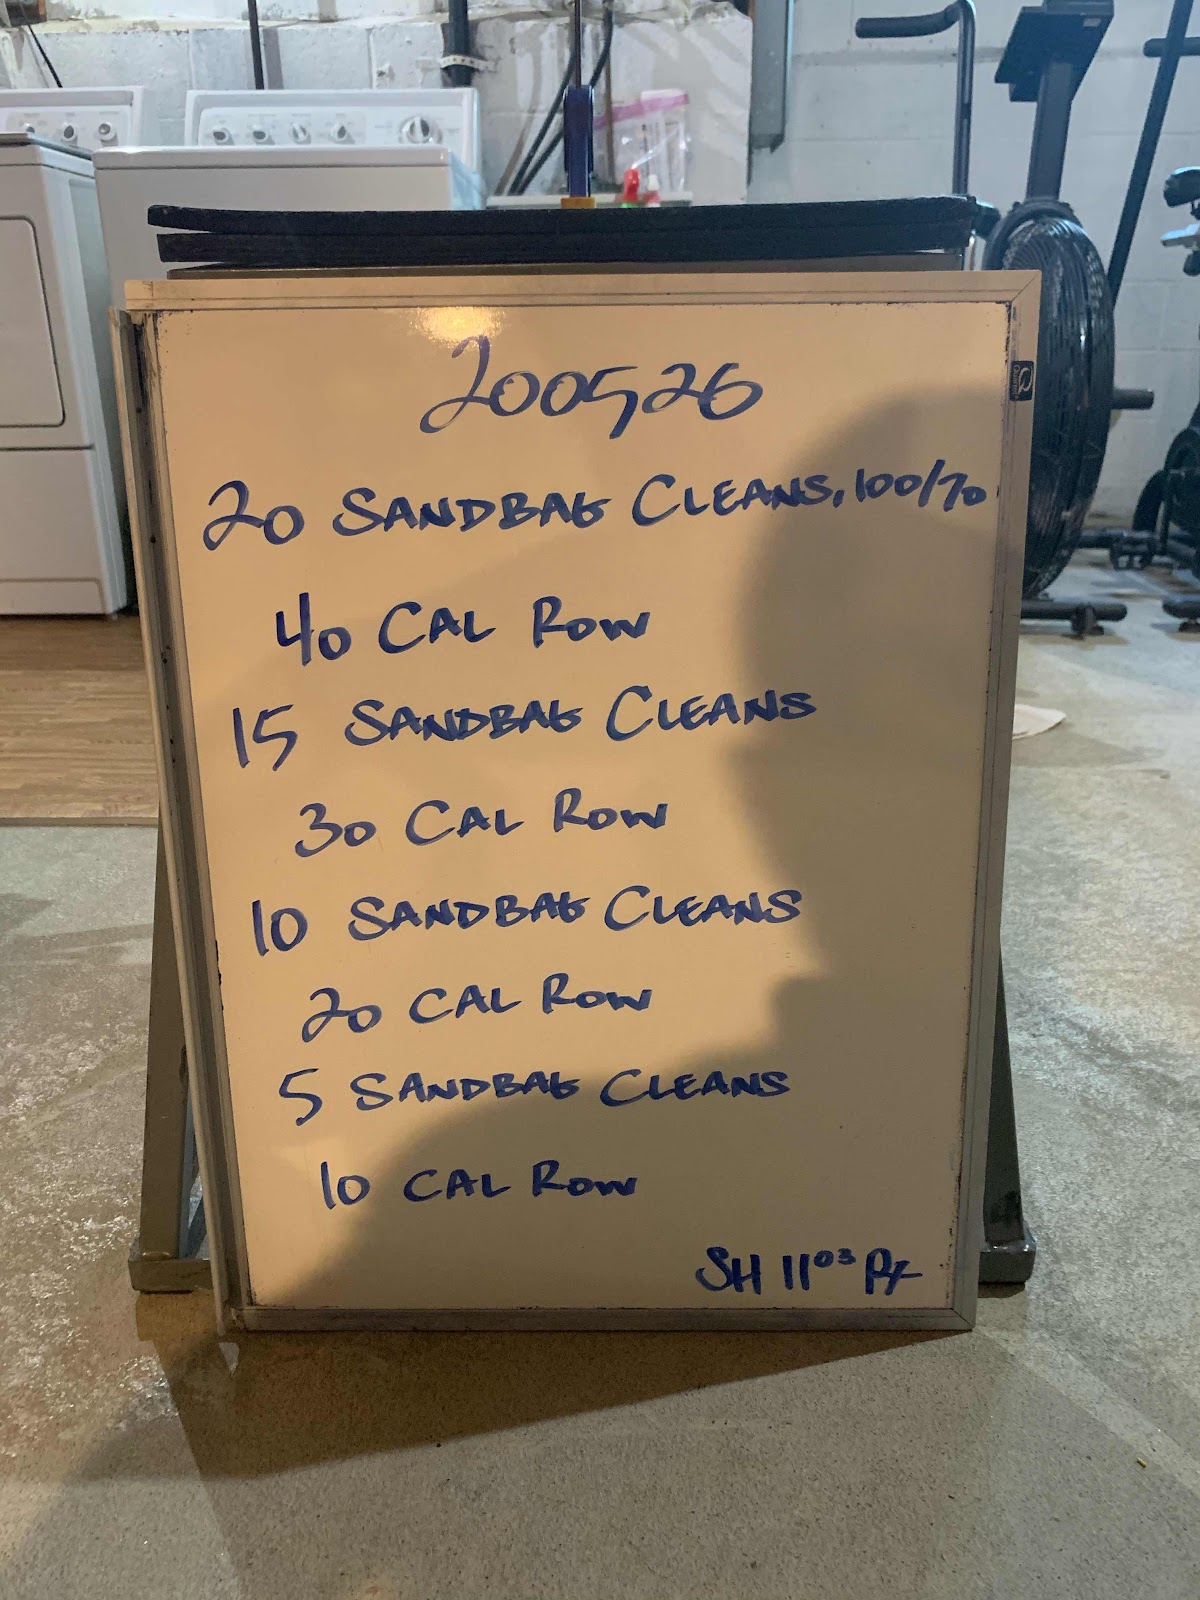 200526
20 SANDBAG CLEANS, 100/70
40 CAL ROW
15 SANDBAG CLEANS
30 CAL ROW
10 SANDBAG CLEANS
20 CAL ROW
5 SANDBAG CLEANS
10 CAL ROW
SH 11⁰³ Rx